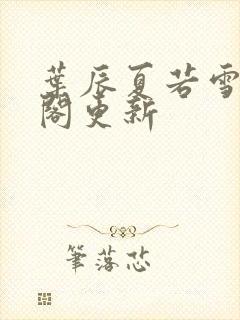 葉辰夏若雪
閣更新
筆落芯